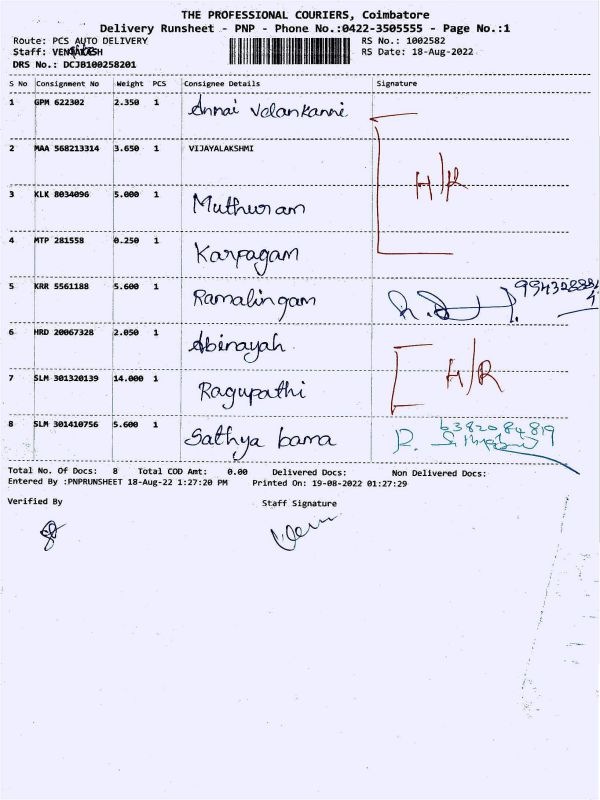 THE PROFESSIONAL COURIERS, Coimbatore
Delivery Runsheet - PNP - Phone No.:0422-3505555 - Page No.:1
Route: PCS AUTO DELIVERY RS No.: 1002582
Staff: RS Date: 18-Aug-2022
DRS No.: DCJB100258201
S No Consignment No Weight PCS Consignee Details Signature
1 GPM 622302 2.350 1 Annai Velankanni
2 MAA 568213314 3.650 1 VIJAYALAKSHMI
H/R
3 KLK 8034096 5.000 1 Muthuram
4 MTP 281558 0.250 1 Karpagam
5 KRR 5561188 5.600 1 Ramalingam
6 HRD 20067328 2.050 1 Abinayah
H/R
7 SLM 301320139 14.000 1 Ragupathi
8 SLM 301410756 5.600 1 Sathya bama 6382084819
Total No. Of Docs: 8 Total COD Amt: 0.00 Delivered Docs: Non Delivered Docs:
Entered By :PNPRUNSHEET 18-Aug-22 1:27:20 PM Printed On: 19-08-2022 01:27:29
Verified By Staff Signature